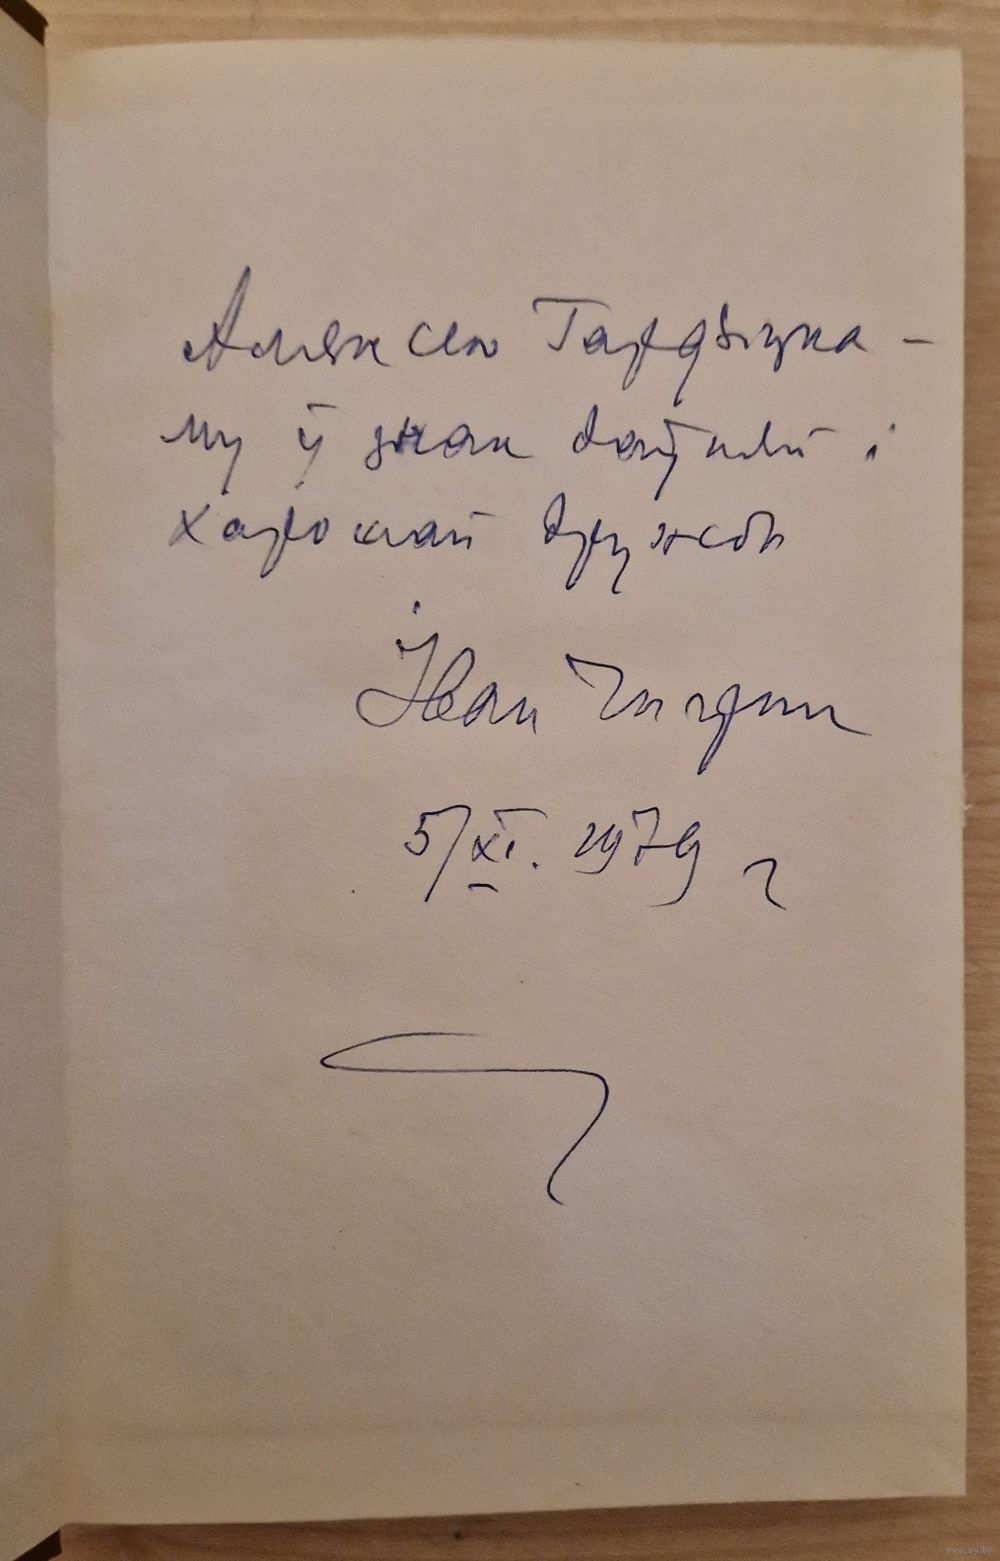 Аляксею Гардзіцка-
му ў знак даўняй і
харошай дружбы
Іван Чыгрын
5/XI. 1979 г
www.ay.by